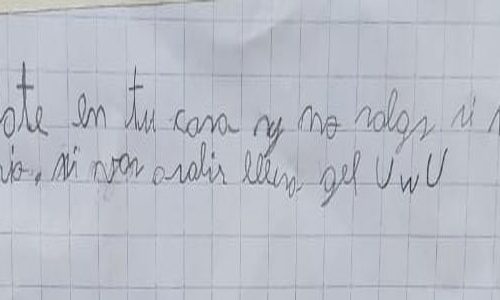 ote en tu casa y no salgs si n
io, si vas a salir lleva gel UwU